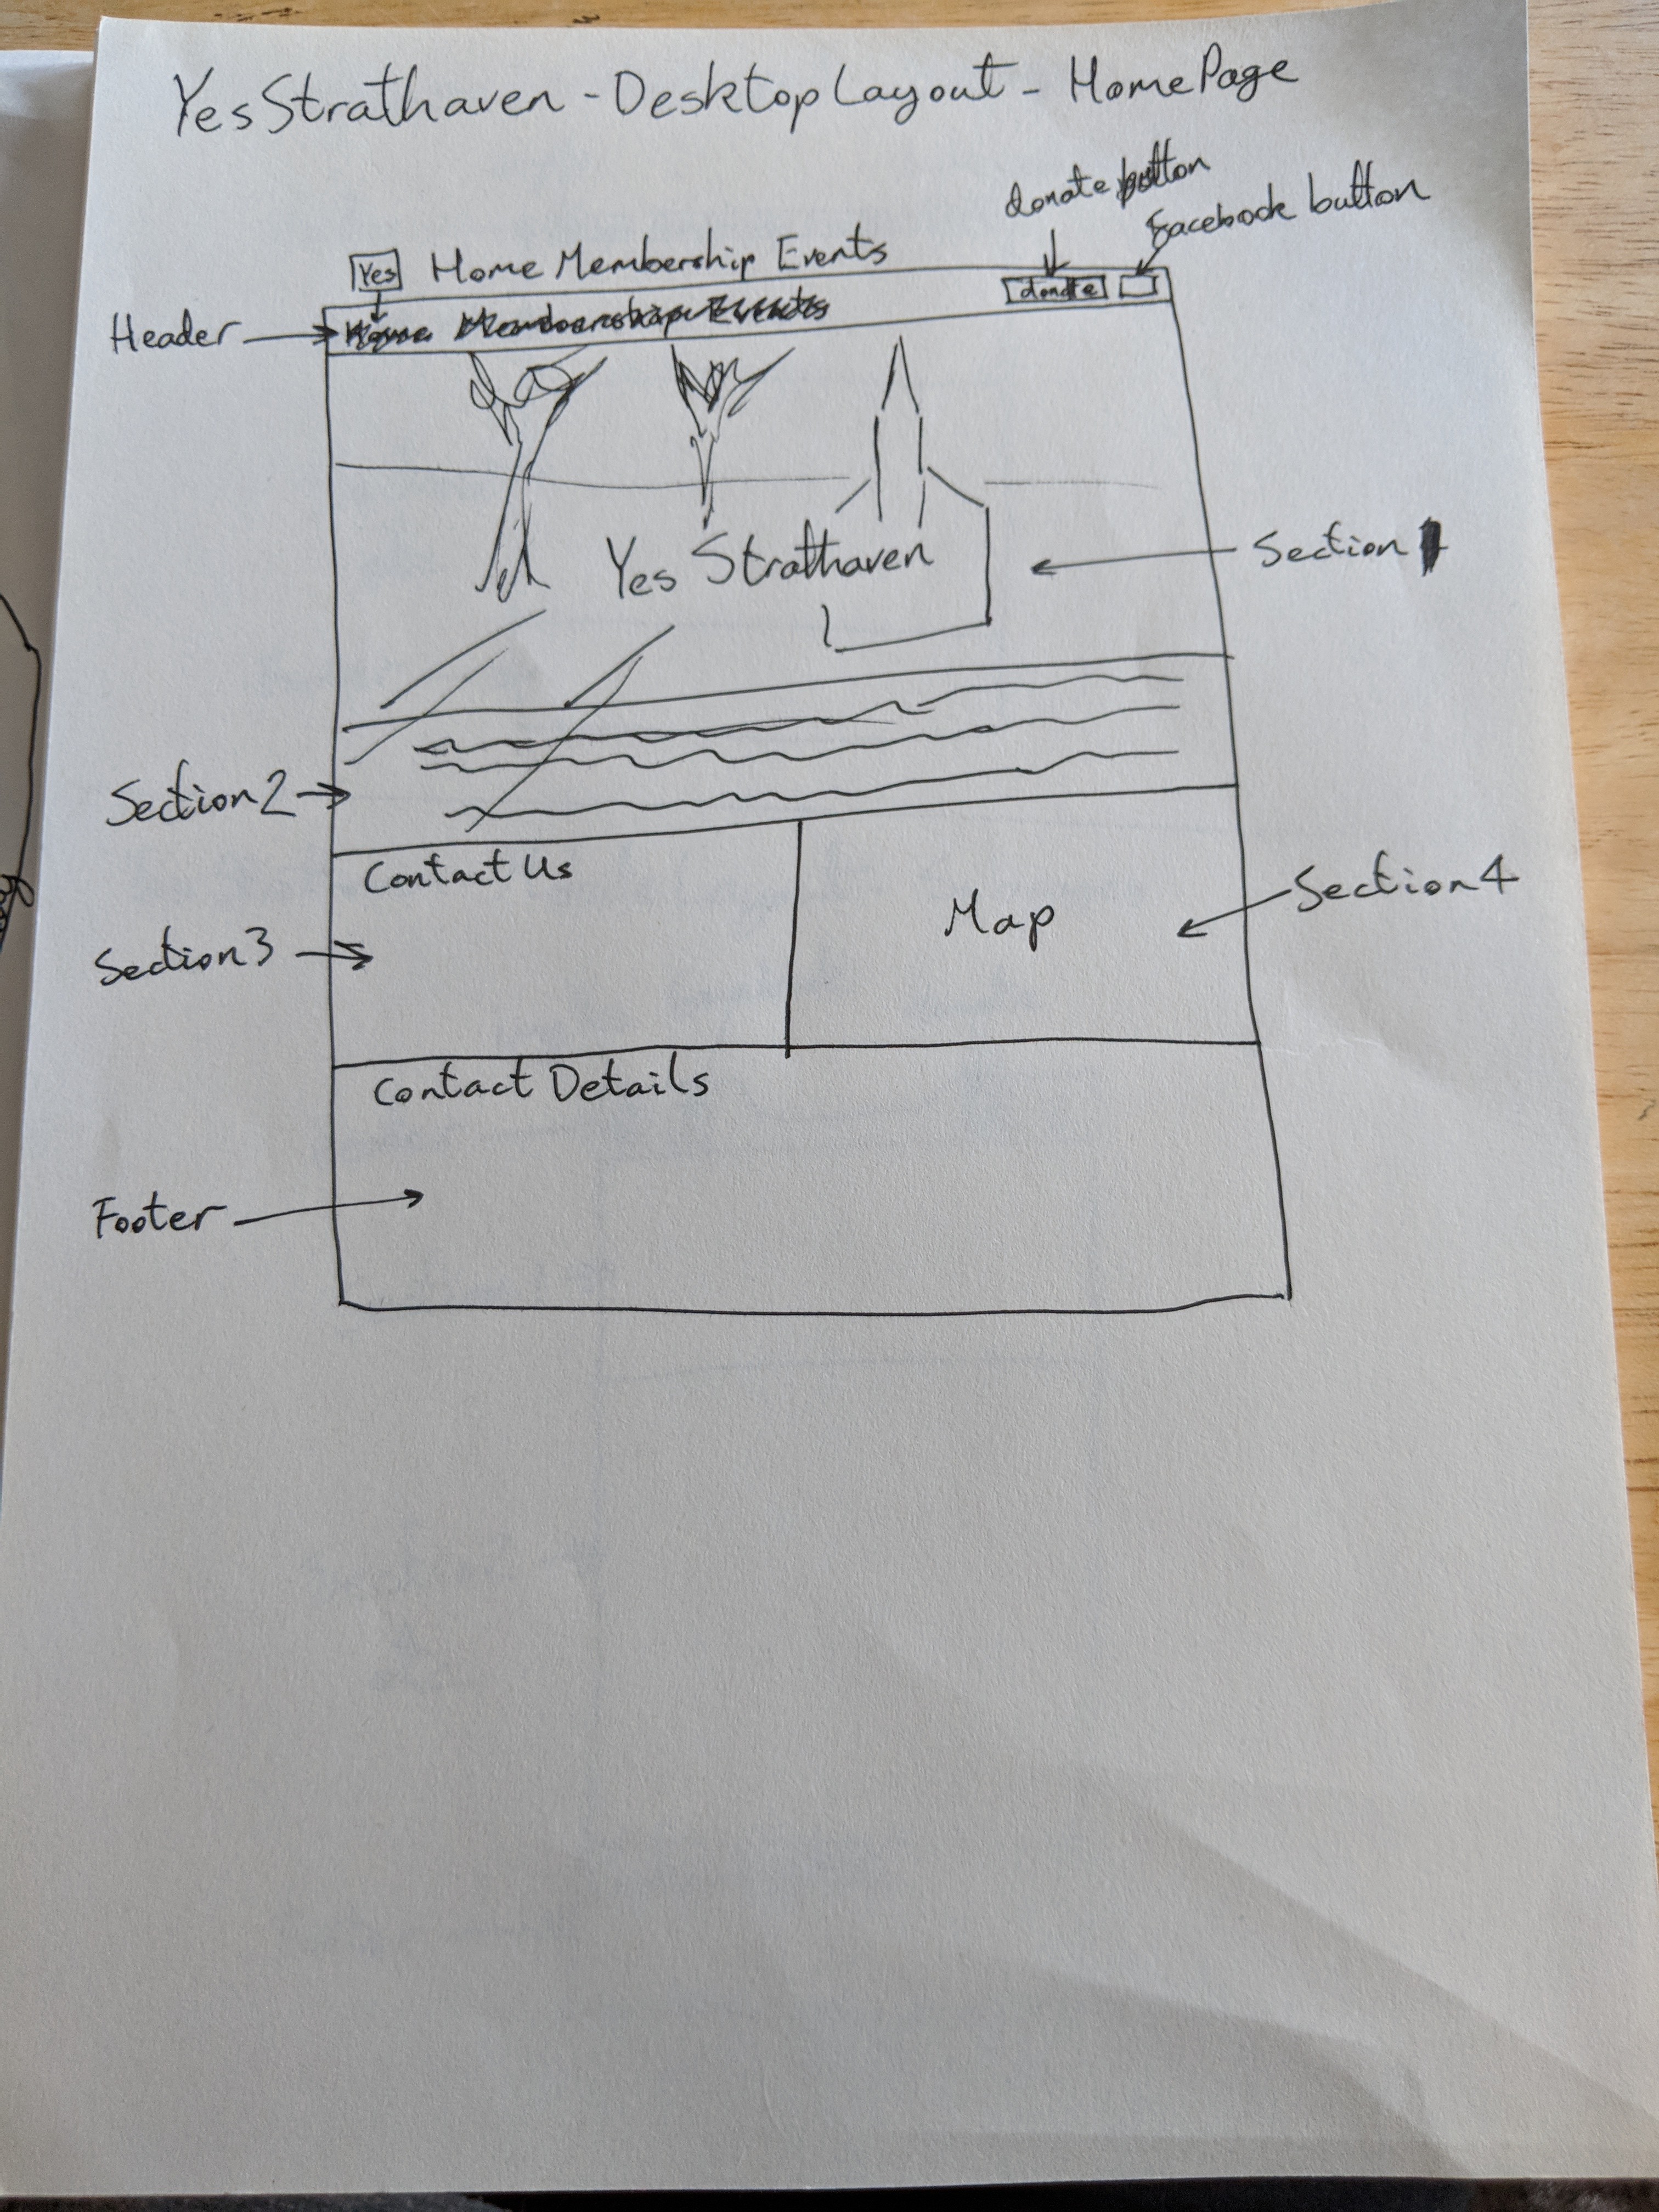 Yes Strathaven - Desktop Layout - Home Page
donate button
Facebook button
Yes Home Membership Events
donate
Header
Home Membership Events
Yes Strathaven
Section 1
Section 2
Contact Us
Map
Section 4
Section 3
Contact Details
Footer